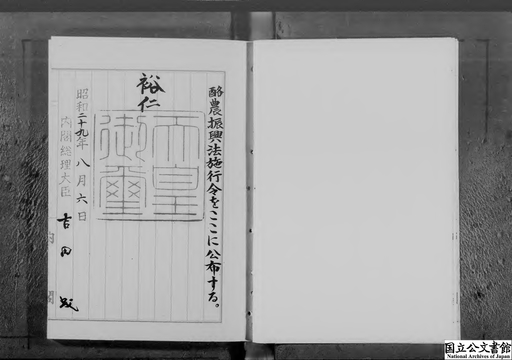 酪農振興法施行令をここに公布する。
裕仁
天皇御璽
昭和二十九年八月六日
内閣総理大臣 吉田茂
内閣
国立公文書館
National Archives of Japan